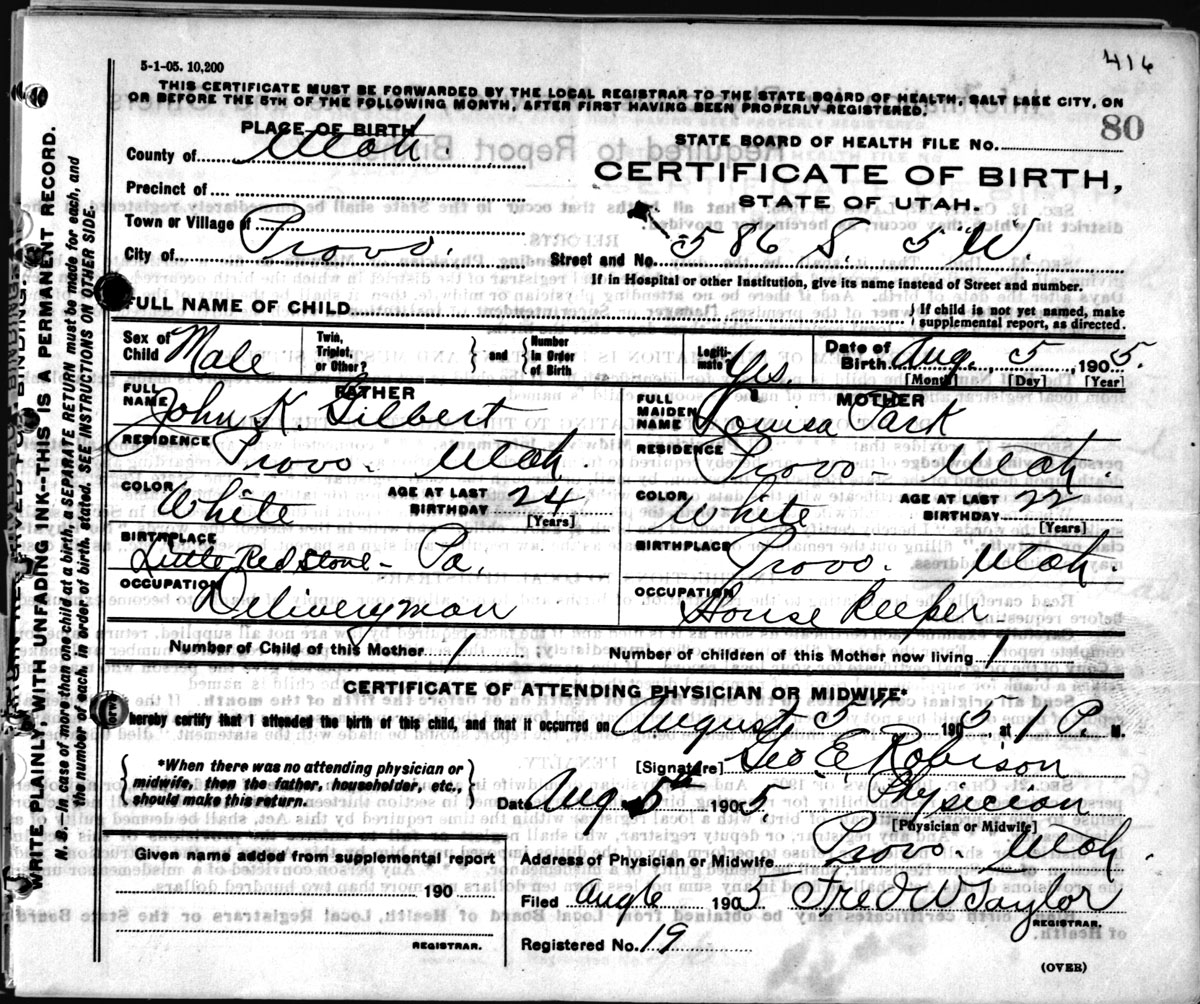 416
5-1-05. 10,200
THIS CERTIFICATE MUST BE FORWARDED BY THE LOCAL REGISTRAR TO THE STATE BOARD OF HEALTH, SALT LAKE CITY, ON
OR BEFORE THE 5TH OF THE FOLLOWING MONTH, AFTER FIRST HAVING BEEN PROPERLY REGISTERED.
80
PLACE OF BIRTH
STATE BOARD OF HEALTH FILE No.
County of Utah
CERTIFICATE OF BIRTH,
STATE OF UTAH.
Precinct of
Town or Village of
City of Provo.
Street and No. 586 S. 5 W.
If in Hospital or other Institution, give its name instead of Street and number.
FULL NAME OF CHILD
{ If child is not yet named, make
supplemental report, as directed.
Sex of Child Male
Twin, Triplet, or Other?
} and {
Number in Order of Birth
Legitimate? Yes.
Date of Birth Aug. 5, 1905.
[Month] [Day] [Year]
FATHER
FULL NAME John K. Gilbert
RESIDENCE Provo - Utah.
COLOR White
AGE AT LAST BIRTHDAY 24
[Years]
BIRTHPLACE Little Redstone - Pa.
OCCUPATION Deliveryman
MOTHER
FULL MAIDEN NAME Louisa Park
RESIDENCE Provo - Utah.
COLOR White
AGE AT LAST BIRTHDAY 22
[Years]
BIRTHPLACE Provo - Utah
OCCUPATION House Keeper
Number of Child of this Mother 1
Number of children of this Mother now living 1
CERTIFICATE OF ATTENDING PHYSICIAN OR MIDWIFE*
I hereby certify that I attended the birth of this child, and that it occurred on August 5 1905, at 1 P. M.
{ *When there was no attending physician or
midwife, then the father, householder, etc.,
should make this return. }
[Signature] Geo. E. Robison
Date Aug 5th 1905. Physician
[Physician or Midwife]
Given name added from supplemental report
190
REGISTRAR.
Address of Physician or Midwife Provo - Utah.
Filed Aug 6 1905 Fred W Taylor
REGISTRAR.
Registered No. 19
(OVER)
WRITE PLAINLY WITH UNFADING INK--THIS IS A PERMANENT RECORD.
N. B.--In case of more than one child at a birth, a SEPARATE RETURN must be made for each, and
the number of each, in order of birth, stated. SEE INSTRUCTIONS ON OTHER SIDE.